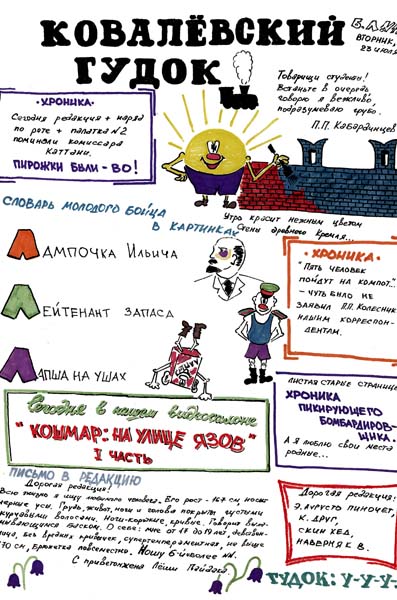 КОВАЛЁВСКИЙ
ГУДОК
ВТОРНИК,
23 ИЮЛЯ
Товарищи студенты!
Встаньте в очередь
говорю я вежливо,
подразумеваю грубо.
П.П. Кабардинцев
·ХРОНИКА·
Сегодня редакция + наряд
по роте + палатка №2
поминали комиссара
Каттани.
ПИРОЖКИ БЫЛИ - ВО!
СЛОВАРЬ МОЛОДОГО БОЙЦА
В КАРТИНКАХ
Утро красит нежным цветом
Стены древнего Кремля...
ЛАМПОЧКА ИЛЬИЧА
ЛЕЙТЕНАНТ ЗАПАСА
ЛАПША НА УШАХ
· ХРОНИКА·
"ПЯТЬ ЧЕЛОВЕК
ПОЙДУТ НА КОМПОТ..."
- ЧУТЬ БЫЛО НЕ
ЗАЯВИЛ П.П. КОЛЕСНИК
НАШИМ КОРРЕСПОН-
ДЕНТАМ.
Сегодня в нашем видеосалоне
"КОШМАР: НА УЛИЦЕ ЯЗОВ"
I ЧАСТЬ
ЛИСТАЯ СТАРЫЕ СТРАНИЦЫ
ХРОНИКА
ПИКИРУЮЩЕГО
БОМБАРДИРОВ-
ЩИКА.
А я люблю свои места
родные...
ПИСЬМО В РЕДАКЦИЮ
Дорогая редакция!
Всю жизнь я ищу человека. Его рост - 164 см,
черные усы. Грудь, живот, ноги и голова покрыты густыми
курчавыми волосами. Ноги-короткие, кривые. Говорит
О себе: мне от 17 до 19 лет,
без вредных привычек, супертемпераментная, не выше
170 см, Ношу
С приветом
Дорогая редакция!
Э. АУРУСТО ПИНОЧЕТ,
К. ДРУГ,
СКИН ХЕД,
НАВЕРНЯК В.
ГУДОК: У-У-У-